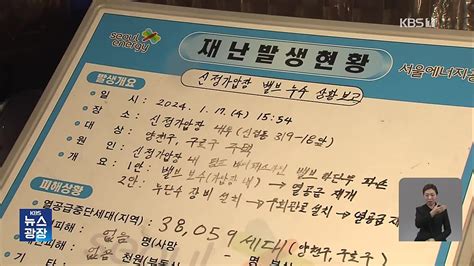 KBS
seoul energy
재난발생현황
서울에너지공
발생개요
신정가압장 밸브 누수 상황보고
일 시 : 2024. 1. 17.(수) 15:54
장 소 : 신정가압장 내부(신정동 319-18앞)
대 상 : 양천구, 구로구
원 인 : 신정가압장 내 밸브 하단부 파손
개 요 : 1안: 밸브 보수(가압장 내) → 열공급 재개
2안: 부단수 장비 설치 → 우회관로 설치 → 열공급 재
피해상황
열공급중단세대(지역) : 38,059세대(양천구, 구로구)
피해 : 없음 명(사망
피해 : 없음 천원(부동
기 타
KBS
뉴스
광장